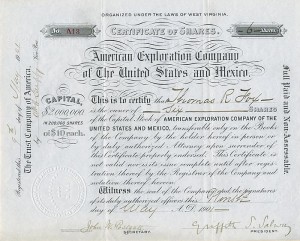 ORGANIZED UNDER THE LAWS OF WEST VIRGINIA.
No
CERTIFICATE OF SHARES.
American Exploration Company
of The United States and Mexico.
CAPITAL
$2,000,000
IN 200,000 SHARES
OF $10 each.
This is to certify that Thomas R. Fox
is the owner of Six SHARES
of the Capital Stock of AMERICAN EXPLORATION COMPANY OF THE
UNITED STATES AND MEXICO, transferable only on the Books
of the Company by the holder hereof in person or
by duly authorized Attorney upon surrender of
this Certificate properly endorsed. This Certificate is
not valid until countersigned after
registration thereof by the Registrar of the Company and
notation thereof hereon.
Witness the seal of the Company and the signatures
of its duly authorized officers this Ninth
day of May A.D. 1901
SECRETARY.
PRESIDENT.
The Trust Company of America
Registered this day of May
Full Paid and Non-Assessable.